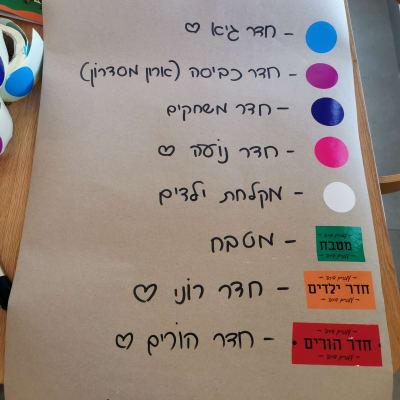 - חדר גיא ♡
- חדר כביסה (ארון מסדרון)
- חדר משחקים
- חדר נועה ♡
- מקלחת ילדים
- מטבח
מטבח
- חדר רוני ♡
חדר ילדים
- חדר הורים ♡
חדר הורים